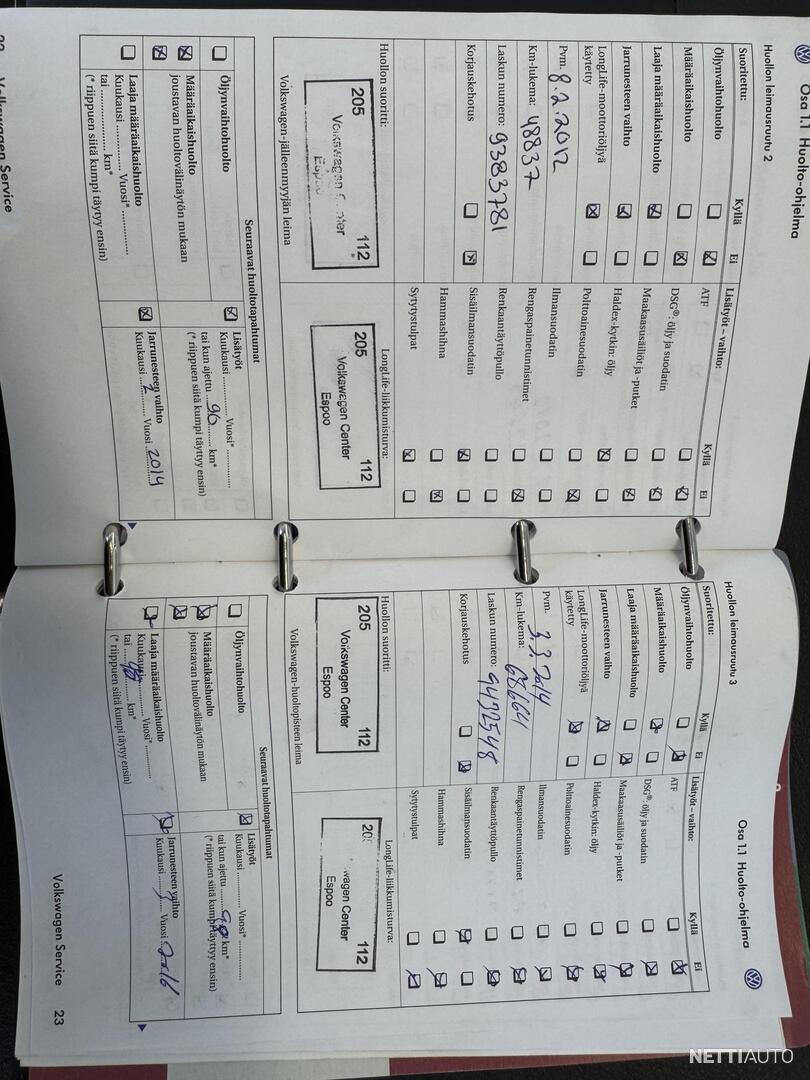 Osa 1.1 Huolto-ohjelma
Huollon leimausruutu 2
Suoritettu: Kyllä Ei
Öljynvaihtohuolto
Määräaikaishuolto
Laaja määräaikaishuolto
Jarrunesteen vaihto
LongLife-moottoriöljyä
käytetty
Pvm. 8.2.2012
Km-lukema: 48837
Laskun numero: 9383781
Korjauskehotus
Lisätyöt – vaihto: Kyllä Ei
ATF
DSG®: öljy ja suodatin
Maakaasusäiliöt ja -putket
Haldex-kytkin: öljy
Polttoainesuodatin
Ilmansuodatin
Rengaspainetunnistimet
Renkaantäyttöpullo
Sisäilmansuodatin
Hammashihna
Sytytystulpat
Huollon suoritti:
205 112
Volkswagen
Espoo
Volkswagen-jälleenmyyjän leima
LongLife-liikkumisturva:
205 112
Volkswagen Center
Espoo
Seuraavat huoltotapahtumat
Öljynvaihtohuolto
Määräaikaishuolto
joustavan huoltovälinäytön mukaan
Laaja määräaikaishuolto
Kuukausi ............ Vuosi* ............
tai .................. km*
(* riippuen siitä kumpi täytyy ensin)
Lisätyöt
Kuukausi ............ Vuosi* ............
tai kun ajettu ...96... km*
(* riippuen siitä kumpi täytyy ensin)
Jarrunesteen vaihto
Kuukausi ..2.. Vuosi 2014
22 Volkswagen Service
Osa 1.1 Huolto-ohjelma
Huollon leimausruutu 3
Suoritettu: Kyllä Ei
Öljynvaihtohuolto
Määräaikaishuolto
Laaja määräaikaishuolto
Jarrunesteen vaihto
LongLife-moottoriöljyä
käytetty
Pvm. 3.2.2014
Km-lukema: 68664
Laskun numero: 9432548
Korjauskehotus
Lisätyöt – vaihto: Kyllä Ei
ATF
DSG®: öljy ja suodatin
Maakaasusäiliöt ja -putket
Haldex-kytkin: öljy
Polttoainesuodatin
Ilmansuodatin
Rengaspainetunnistimet
Renkaantäyttöpullo
Sisäilmansuodatin
Hammashihna
Sytytystulpat
Huollon suoritti:
205 112
Volkswagen Center
Espoo
Volkswagen-huoltopisteen leima
LongLife-liikkumisturva:
112
Center
Espoo
Seuraavat huoltotapahtumat
Öljynvaihtohuolto
Määräaikaishuolto
joustavan huoltovälinäytön mukaan
Laaja määräaikaishuolto
Kuukausi ............ Vuosi* ............
tai ........ km*
(* riippuen siitä kumpi täytyy ensin)
Lisätyöt
Kuukausi ............ Vuosi* ............
tai kun ajettu ........ km*
(* riippuen siitä kumpi täytyy ensin)
Jarrunesteen vaihto
Kuukausi ........ Vuosi 2016
Volkswagen Service 23
NETTIAUTO